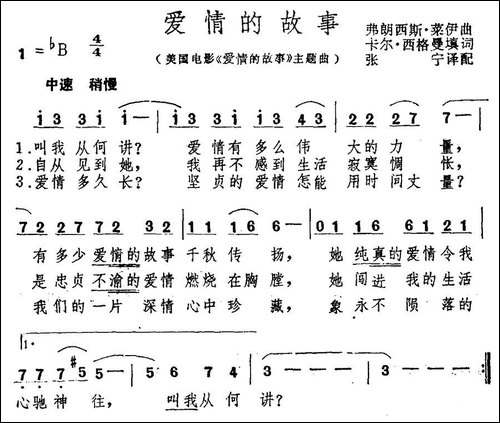 爱情的故事
1=♭B 4/4
（美国电影《爱情的故事》主题曲）
弗朗西斯·莱伊曲
卡尔·西格曼填词
张 宁译配
中速 稍慢
i 3 3 i i — i 3 3 i 3 4 3 2 2 2 7 7 —
1.叫我从何讲？ 爱情有多么伟 大的力 量，
2.自从见到她， 我再不感到生活 寂寞惆 怅，
3.爱情多久长？ 坚贞的爱情怎能 用时间丈量？
7 2 2 7 2 7 2 3 2 i i 1 6 1 6 — 0 1 1 6 1 6 6 1 2 1
有多少爱情的故事 千秋传 扬， 她纯真的爱情令我
是忠贞不渝的爱情 燃烧在胸膛， 她闯进 我的生活
我们的一片 深情 心中珍 藏， 象永不 陨落的
1.
7 7 7 #5 5 — — 5 6 7 4 3 — — — 3 — — —
心驰神 往， 叫我从何讲？